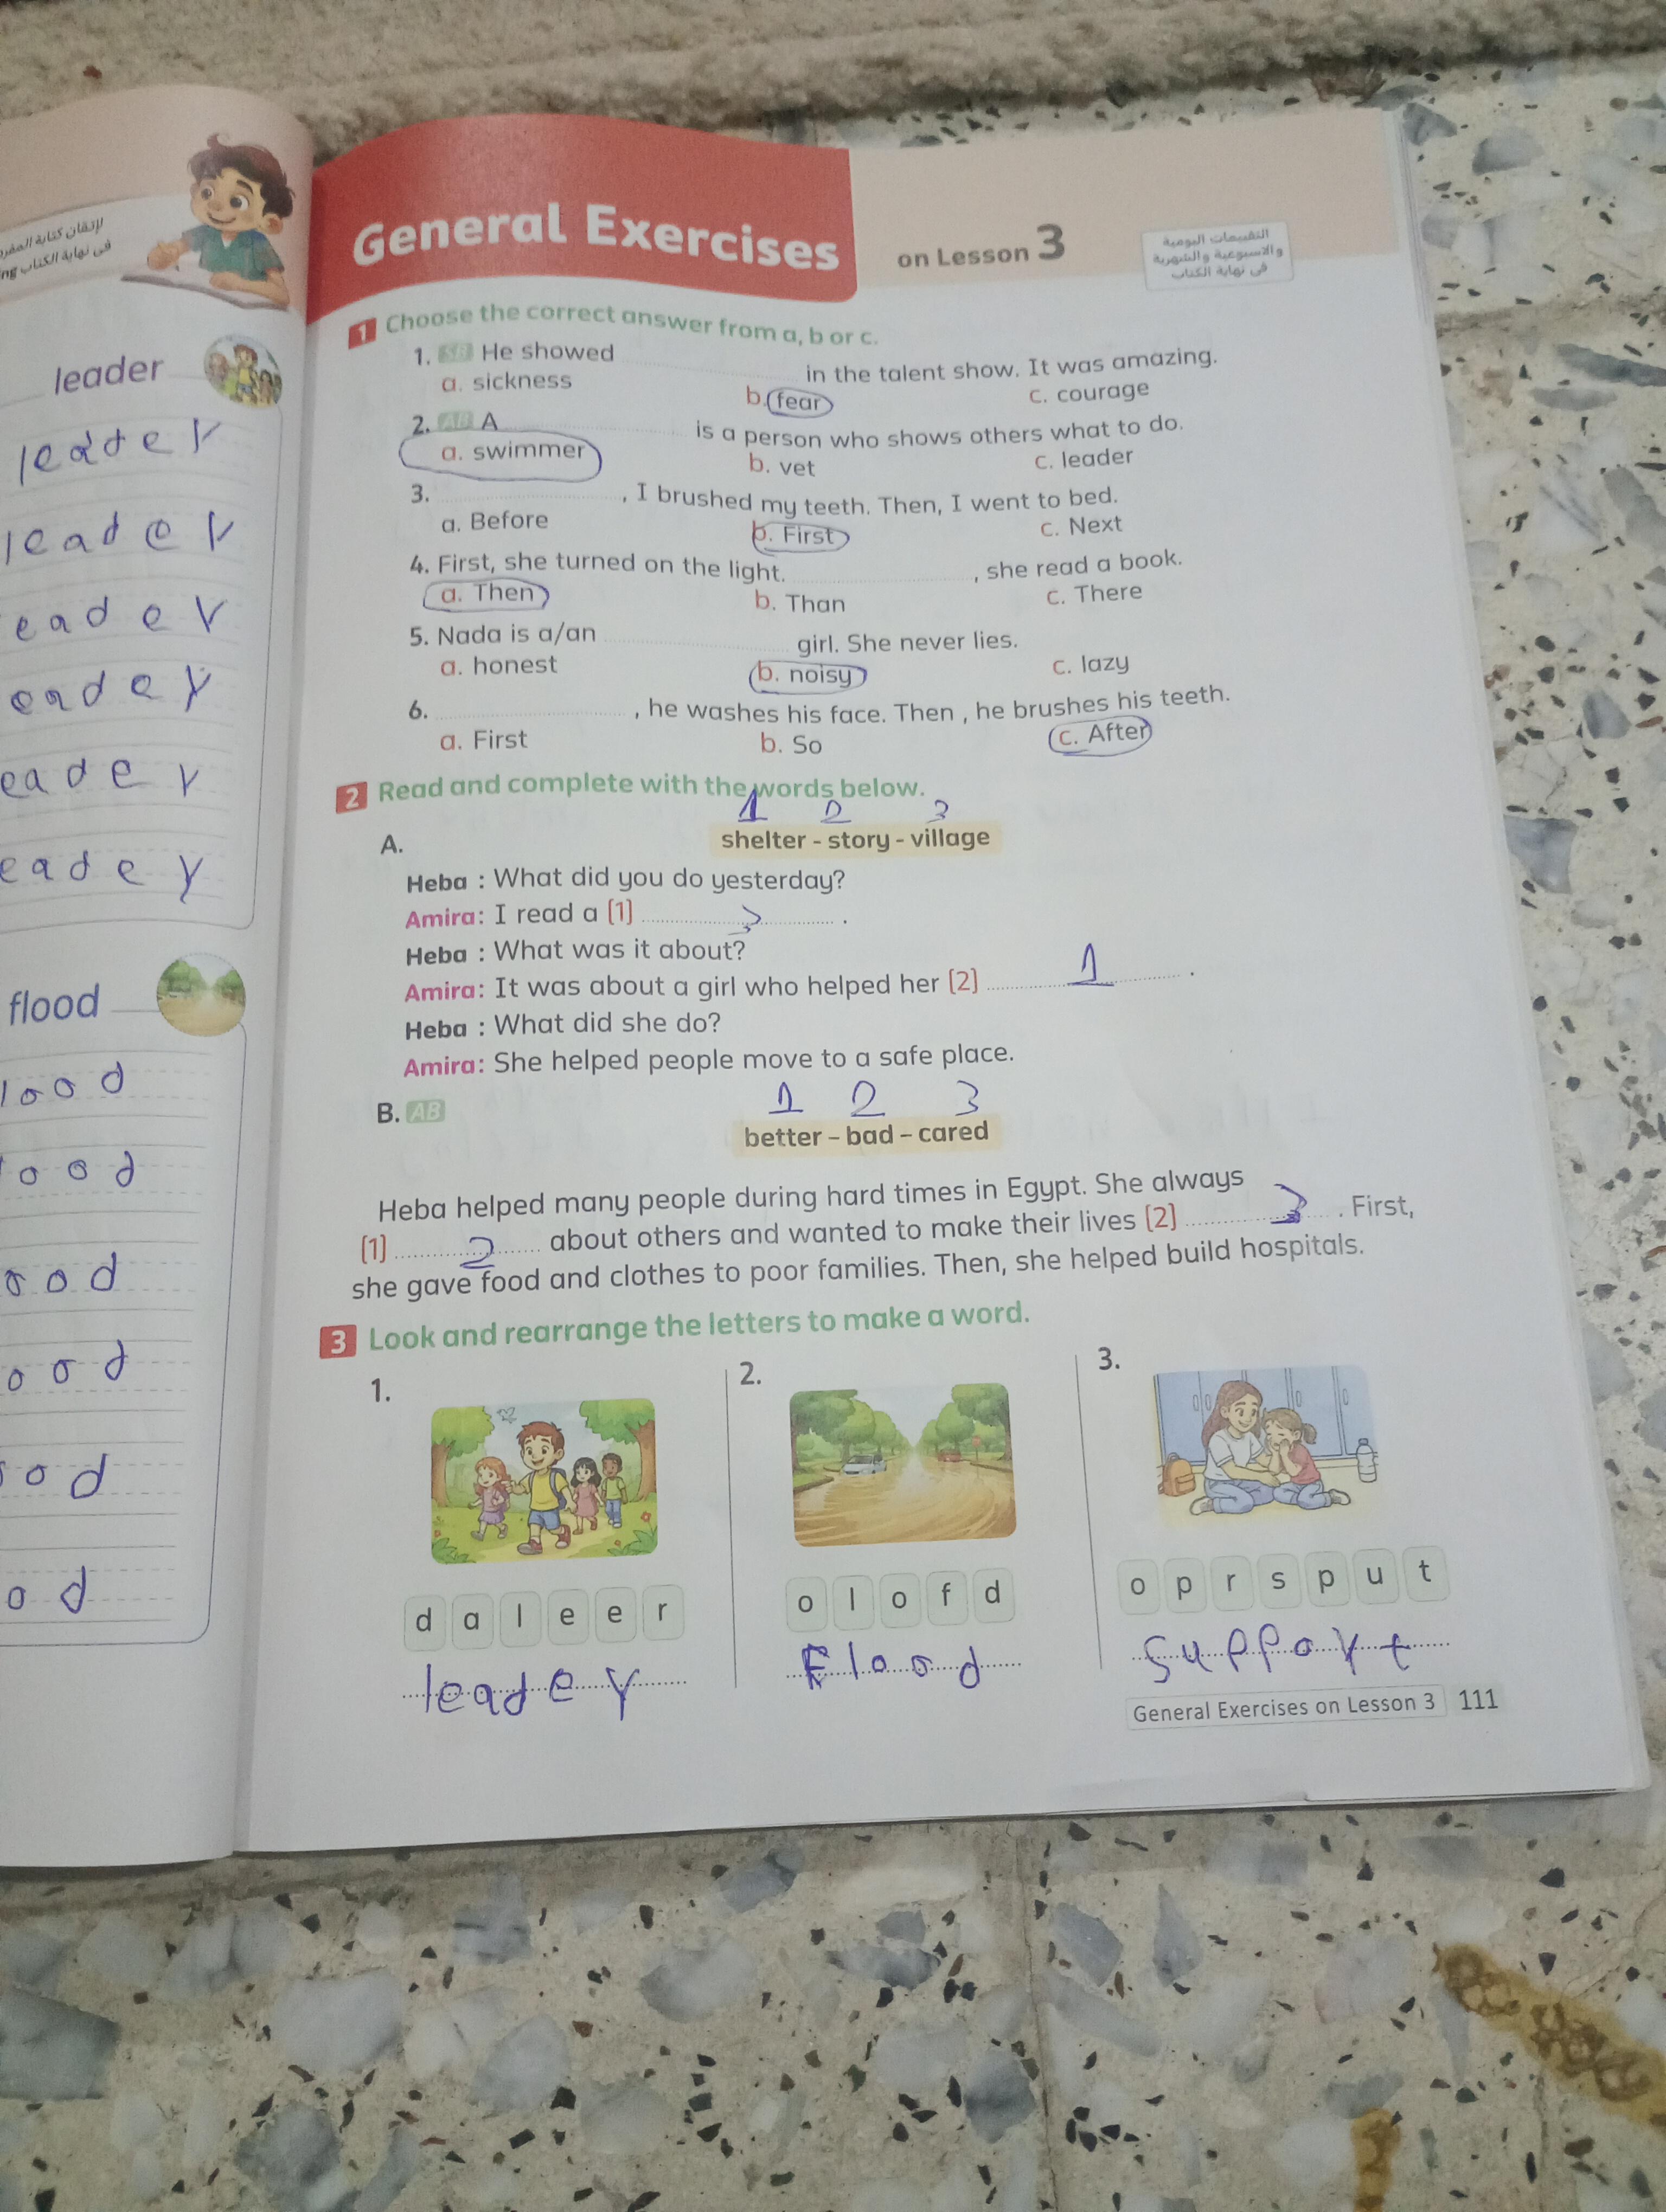 لإتقان كتابة
فى نهاية الكتاب ng
leader
leader
leader
eader
eader
eader
eader
flood
lood
ood
ood
ood
ood
od
General Exercises
on Lesson 3
التقييمات اليومية
والأسبوعية والشهرية
فى نهاية الكتاب
1 Choose the correct answer from a, b or c.
1. SB He showed in the talent show. It was amazing.
a. sickness b. fear c. courage
2. AB A is a person who shows others what to do.
a. swimmer b. vet c. leader
3. , I brushed my teeth. Then, I went to bed.
a. Before b. First c. Next
4. First, she turned on the light. , she read a book.
a. Then b. Than c. There
5. Nada is a/an girl. She never lies.
a. honest b. noisy c. lazy
6. , he washes his face. Then , he brushes his teeth.
a. First b. So c. After
2 Read and complete with the words below.
1 2 3
A. shelter - story - village
Heba : What did you do yesterday?
Amira: I read a (1) 3 .
Heba : What was it about?
Amira: It was about a girl who helped her (2) 1 .
Heba : What did she do?
Amira: She helped people move to a safe place.
1 2 3
B. AB better – bad – cared
Heba helped many people during hard times in Egypt. She always
(1) 2 about others and wanted to make their lives (2) 3 . First,
she gave food and clothes to poor families. Then, she helped build hospitals.
3 Look and rearrange the letters to make a word.
1. 2. 3.
d a l e e r
o l o f d
o p r s p u t
leader
Flood
support
General Exercises on Lesson 3 111